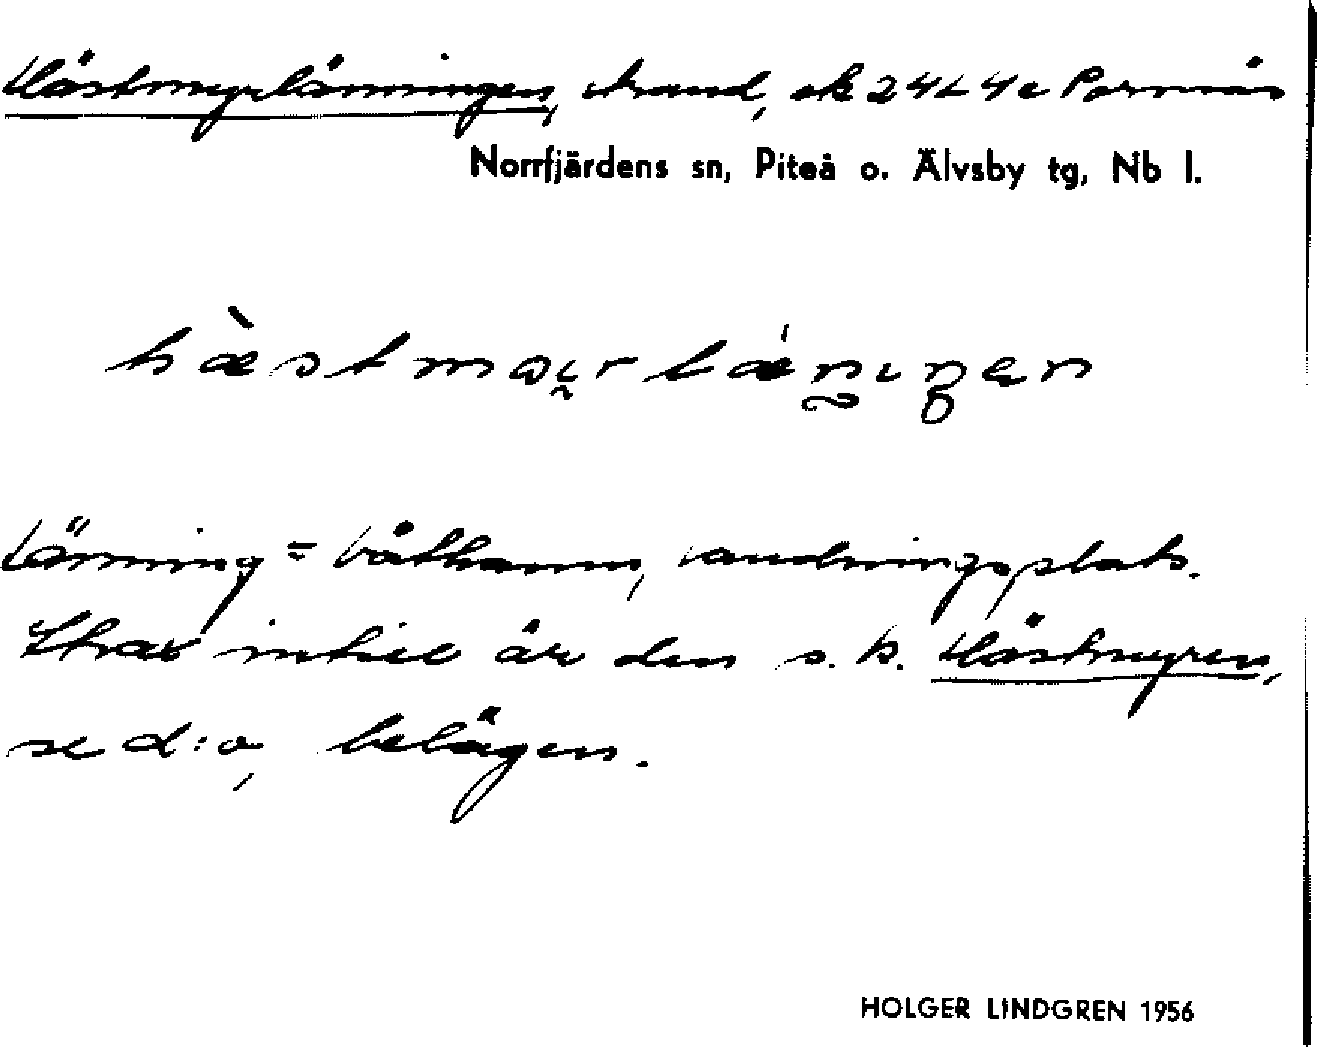 Hästmyrlänningen, strand, ek 24L4e Porsnäs
Norrfjärdens sn, Piteå o. Älvsby tg, Nb l.
hæ̀stmɷırlǽnıŋen
Länning = båthamn, landningsplats.
Strax intill är den s.k. Hästmyren,
se d:o, belägen.
HOLGER LINDGREN 1956